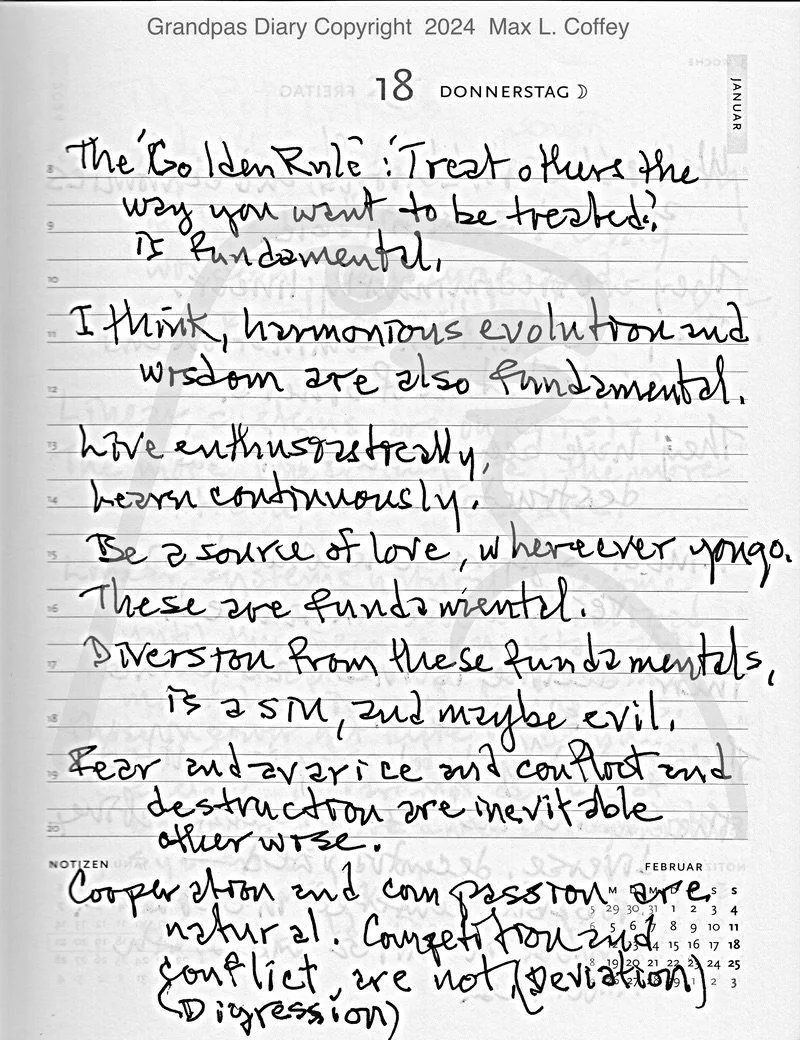 Grandpas Diary Copyright 2024 Max L. Coffey
18 DONNERSTAG
JANUAR
The "Golden Rule": 'Treat others the
way you want to be treated.'
is fundamental.
I think, harmonious evolution and
wisdom are also fundamental.
Live enthusiastically,
Learn continuously.
Be a source of love, whereever you go.
These are fundamental.
Diversion from these fundamentals,
is a sin, and maybe evil.
Fear and avarice and conflict and
destruction are inevitable
otherwise.
NOTIZEN
FEBRUAR
Cooperation and compassion are
natural. Competition and
conflict, are not, (Deviation)
(Digression)
8
9
10
11
12
13
14
15
16
17
18
19
20
M D M D F S S
5 29 30 31 1 2 3 4
6 5 6 7 8 9 10 11
14 15 16 17 18
8 19 20 21 22 23 24 25
1 2 3